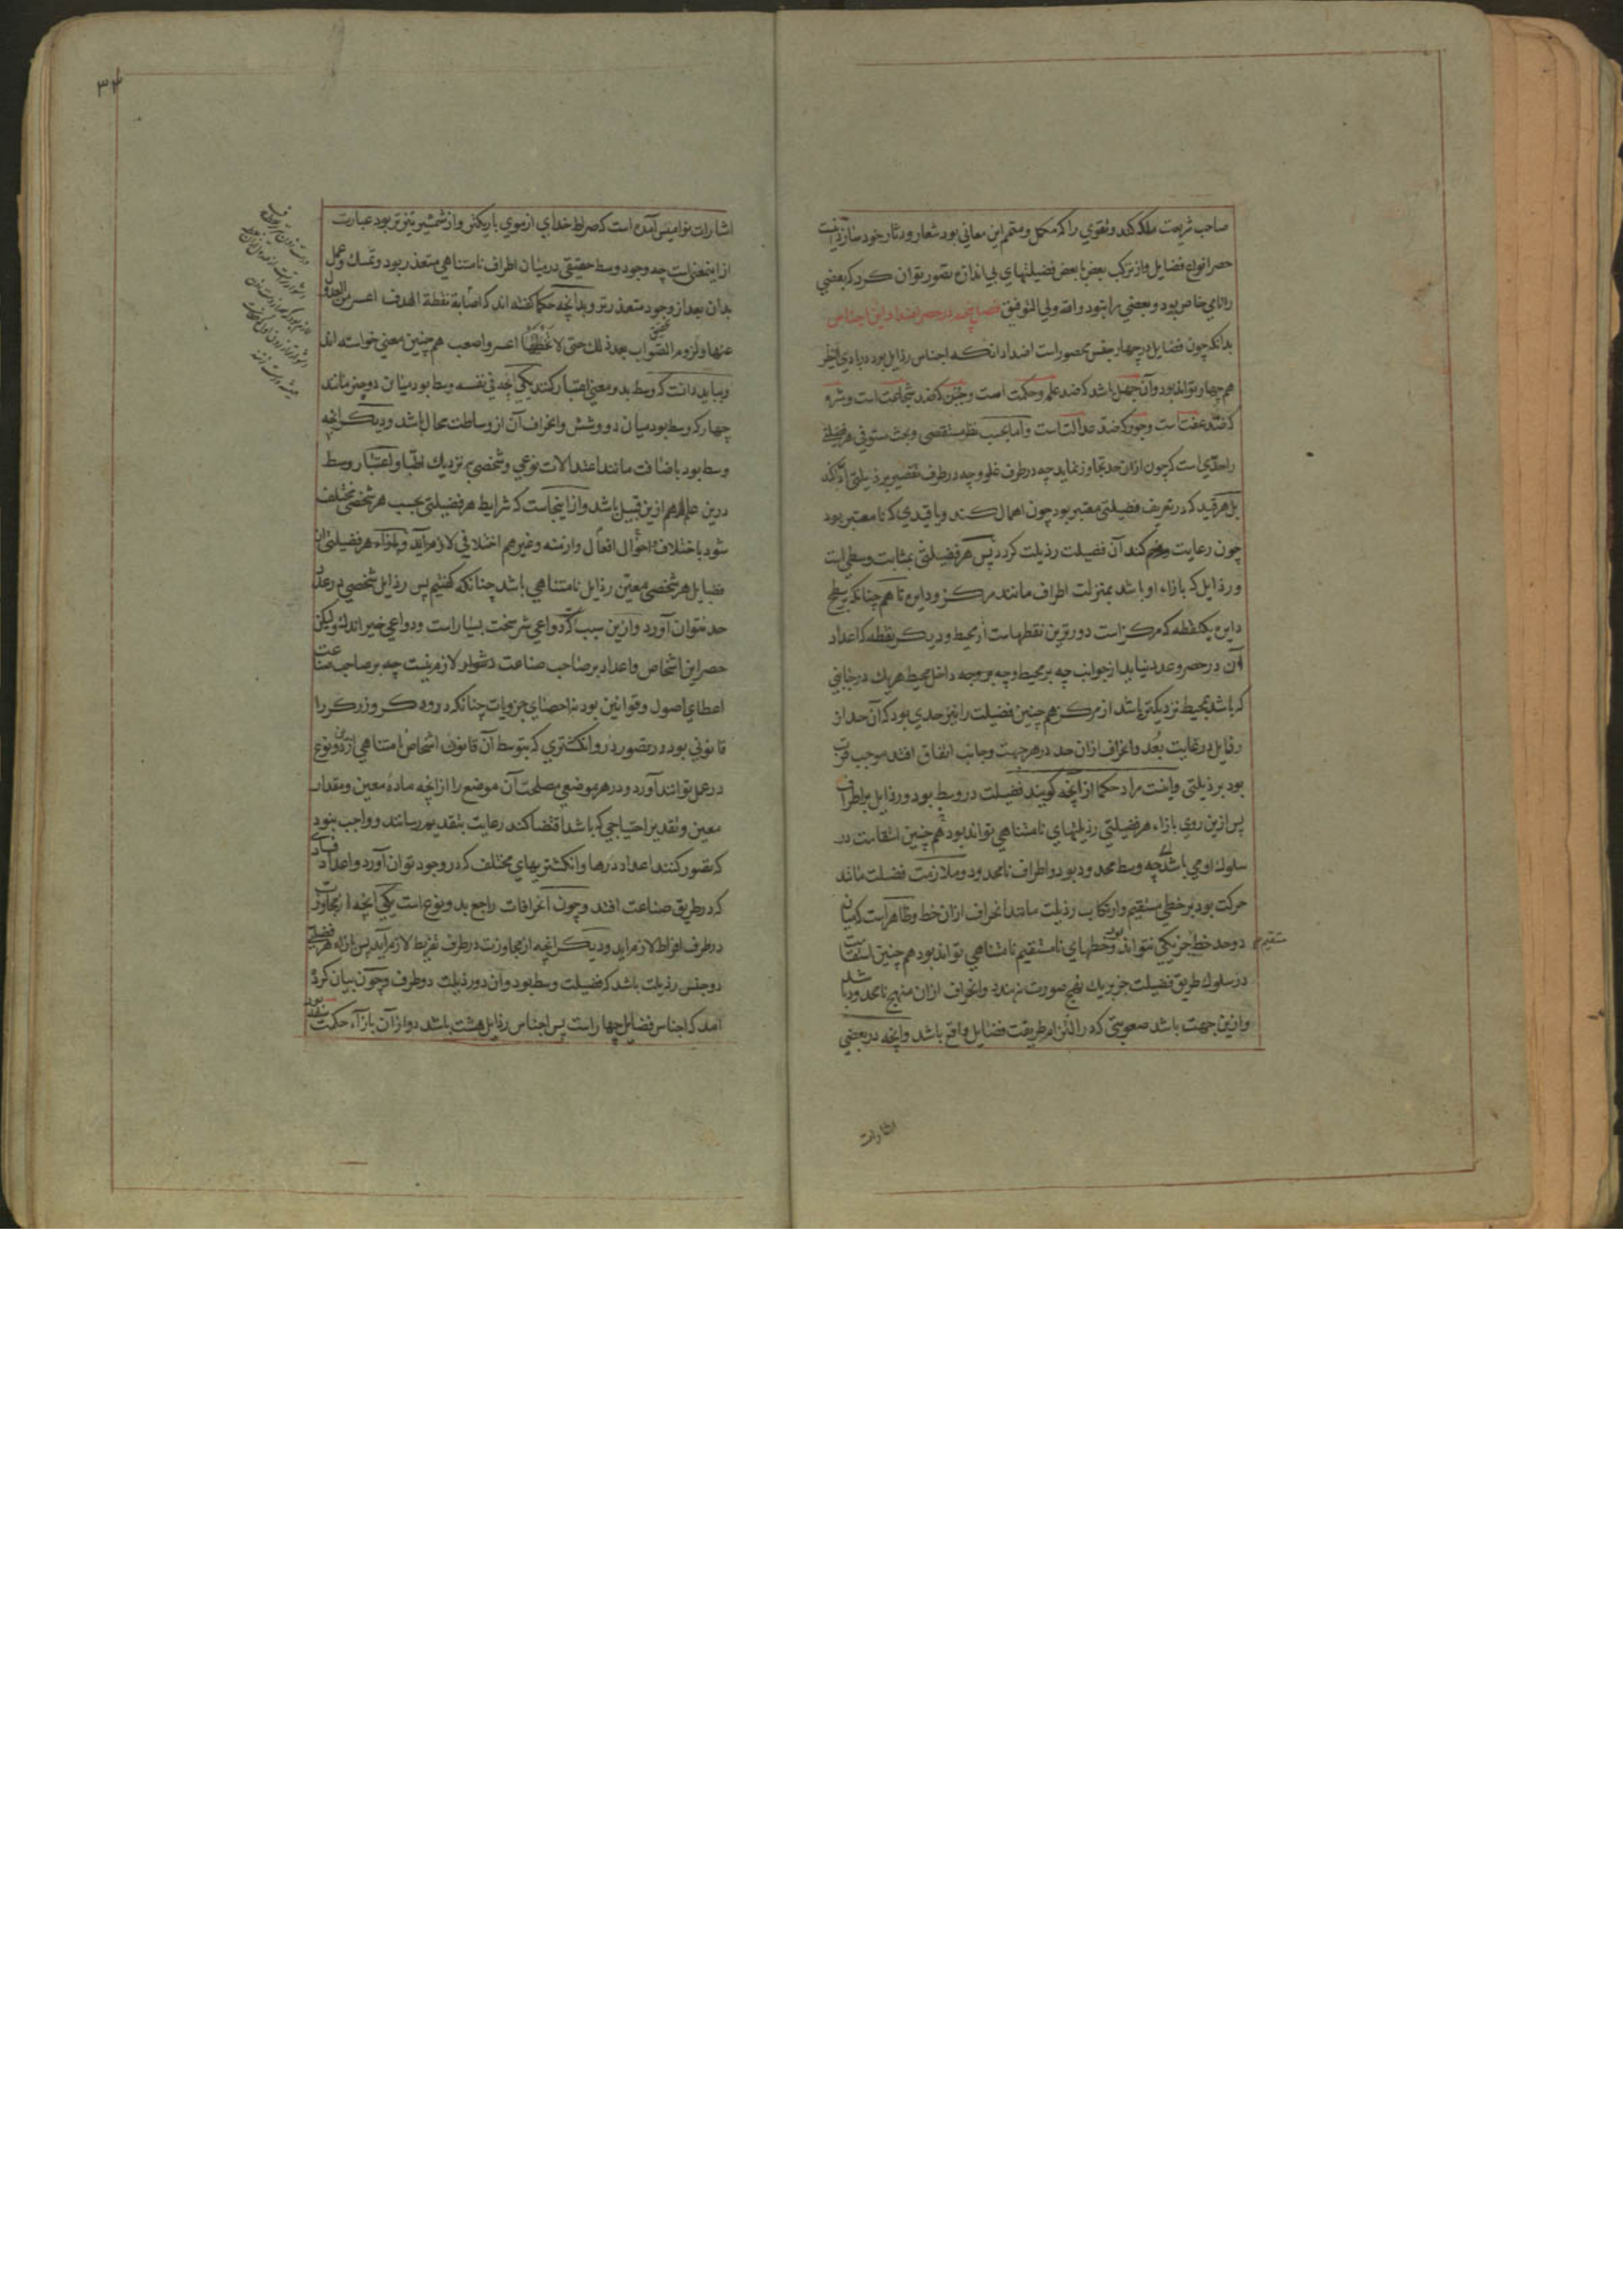 صاحب شریعت ملکه کند و تقوی را که مکمل و متمم این معانی بود شعار و دثار خود سازد اینست
حصر انواع فضایل و از ترکب بعض با بعض فضیلتهای بی اندازه تصور توان کرد که بعضی
را نامی خاص بود و بعضی را نبود والله ولی التوفیق فصل پنجم در حصر اضداد این اجناس
بدانکه چون فضایل در چهار جنس محصور است اضداد انکه اجناس رذایل بود در بادی النظر
هم چهار تواند بود و آن جهل باشد که ضد علم و حکمت است و جبن که ضد شجاعت است و شره
که ضد عفت است و جور که ضد عدالت است و اما بحسب نظر مستقصی و بحث مستوفی هر فضیلتی
را حدّی است که چون ازان حد تجاوز نماید چه در طرف غلو و چه در طرف تقصیر برذیلتی ادا کند
بل هر قید که در تعریف فضیلتی معتبر بود چون اهمال کنند و یا قیدی که نا معتبر بود
چون رعایت کند آن فضیلت رذیلت کردد پس هر فضیلتی بمثابت وسطی است
و رذایل که بازاء او باشد بمنزلت اطراف مانند مرکز و دایره تا هم چنانکه بر سطح
دایره یک نقطه که مرکز است دورترین نقطهاست از محیط و دیگر نقطه که اعداد
آن در حصر و عد نیاید از جوانب چه بر محیط و چه بر وجه داخل محیط هر یک در جانبی
که باشد بمحیط نزدیکتر باشد از مرکز هم چنین فضیلت را نیز حدی بود که آن حد از
رذایل در غایت بُعد و انحراف ازان حد در هر جهت و جانب اتفاق افتد موجب قرب
بود بر ذیلتی و اینست مراد حکما از آنچه گویند فضیلت در وسط بود و رذایل بر اطراف
پس ازین روی بازاء هر فضیلتی رذیلتهای نامتناهی تواند بود هم چنین استقامت در
سلوک او می باشد چه وسط محدود بود و اطراف نامحدود و ملازمت فضیلت مانند
حرکت بود بر خطی مستقیم و ارتکاب رذیلت مانند انحراف ازان خط و ظاهر است که میان
دو حد خط جز یکی نتواند بود و خطهای نامستقیم نامتناهی تواند بود هم چنین استقامت
مستقیم
در سلوک طریق فضیلت جز بر یک نهج صورت نبندد و انحراف ازان منهج نامحدود باشد
و ازین جهت باشد صعوبتی که در التزام طریقت فضایل واقع باشد و آنچه در بعضی
اشارات
۳۴
اشارات نوامیس آمده است که صراط خدای از موی باریکتر و از شمشیر تیزتر بود عبارت
ازین معنی است چه وجود وسط حقیقی در میان اطراف نامتناهی متعذر بود و تمسک و عمل
بدان بعد از وجود متعذرتر و بدانچه حکما گفته اند که اصابة نقطة الهدف اعسر من العدول
عنها ولزوم الصواب بعد ذلک حتی لا تخطیها اعسر و اصعب هم چنین معنی خواسته اند
و بباید دانست که وسط بدو معنی اعتبار کنند یکی آنچه فی نفسه وسط بود میان دو چیز مانند
چهار که وسط بود میان دو و شش و انحراف آن از وساطت محال باشد و دیگر انچه
وسط بود باضافت مانند اعتدالات نوعی و شخصی بنزدیک اطبا و اعتبار وسط
درین علم هم ازین قبیل باشد و از اینجاست که شرایط هر فضیلتی بحسب هر شخصی مختلف
شود باختلاف احوال افعال و ازمنه و غیر هم اختلافی لازم آید و بازاء هر فضیلتی از
فضایل هر شخصی معین رذایل نامتناهی باشد چنانکه گفتیم پس رذایل شخصی در عدد
حد نتوان آورد و ازین سبب که دواعی شر سخت بسیار است و دواعی خیر اندک ولیکن
حصر این اشخاص و اعداد بر صاحب صناعت دشوار لازم نیست چه بر صاحب صناعت
اعطای اصول و قوانین بود نه احصای جزویات چنانکه درودگر و زرگر را
قانونی بود در تصور در و انگشتری که بتوسط آن قانون اشخاص نامتناهی ازین دو نوع
در عمل توانند آورد و در هر موضعی مصلحت آن موضع را از انچه ماده معین و مقدار
معین و تقدیر احتیاجی که باشد اقتضا کند رعایت بتقدیم رسانند و واجب نبود
که تصور کنند اعداد درها و انگشتریهای مختلف که در وجود توان آورد و اعداد فسادی
که در طریق صناعت افتد و چون انحرافات راجع بدو نوع است یکی انچه از مجاوزت
در طرف افراط لازم اید و دیگر انچه از مجاوزت در طرف تفریط لازم آید پس بازاء هر فضیلتی
دو جنس رذیلت باشد که فضیلت وسط بود و آن دو رذیلت دو طرف و چون بیان کرده
امد که اجناس فضایل چهار است پس اجناس رذایل هشت باشد دو از آن بازاء حکمت